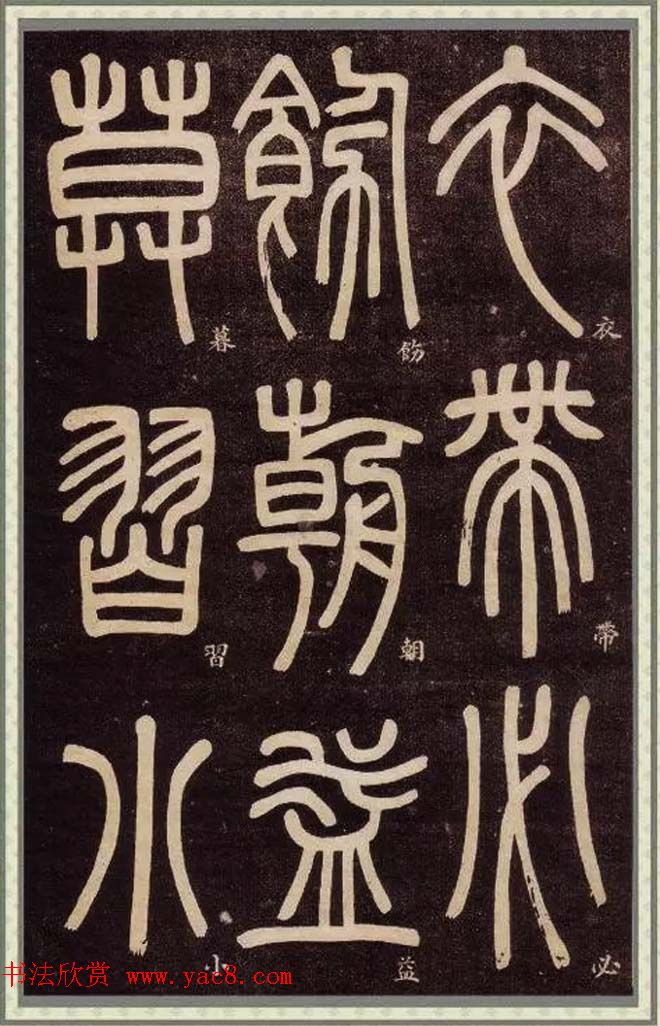 衣帶必
衣帶必
飭朝益
飭朝益
暮習小
暮習小
书法欣赏 www.yac8.com